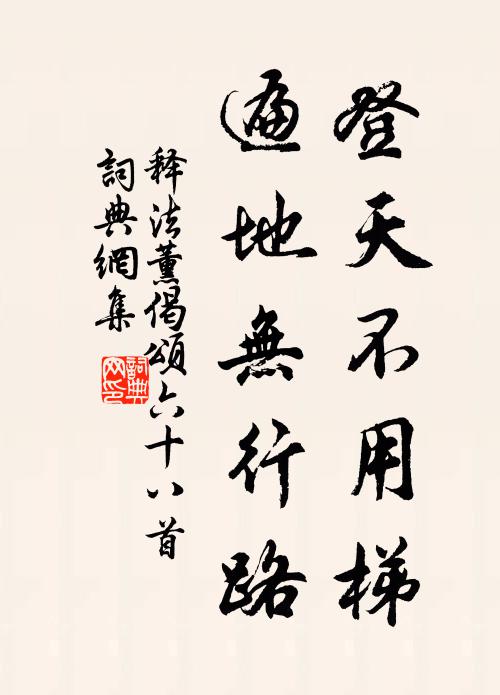 登天不用梯
遍地無行路
释法薰偈頌六十八首
詞典網集
詞典网印